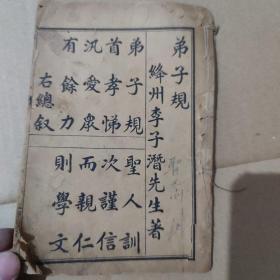 弟子規
絳州李子潛先生著
弟子規 聖人訓
首孝悌 次謹信
汎愛衆 而親仁
有餘力 則學文
右總叙